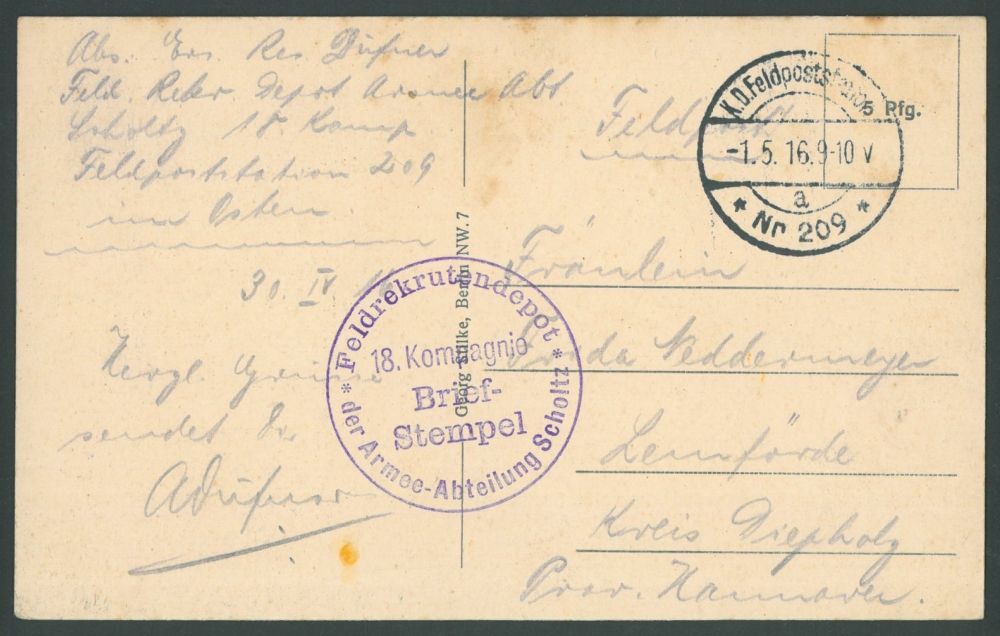 Abs. Ers. Res. Düfner
Feld. Rekr. Depot Armee Abt
Scholtz 18 Komp
Feldpoststation 209
im Osten.
30. IV. 16
Herzl. Grüsse
sendet Dir
ADüfner
Feldrekrutendepot
18. Kompagnie
Brief-
Stempel
der Armee-Abteilung Scholtz
Georg Stilke, Berlin NW. 7
Feldpost.
K.D.Feldpoststation
-1.5.16.9-10 V
a
* Nr 209 *
5 Pfg.
Fräulein
Frida Neddermeyer
Lemförde
Kreis Diepholz
Prov. Hannover.